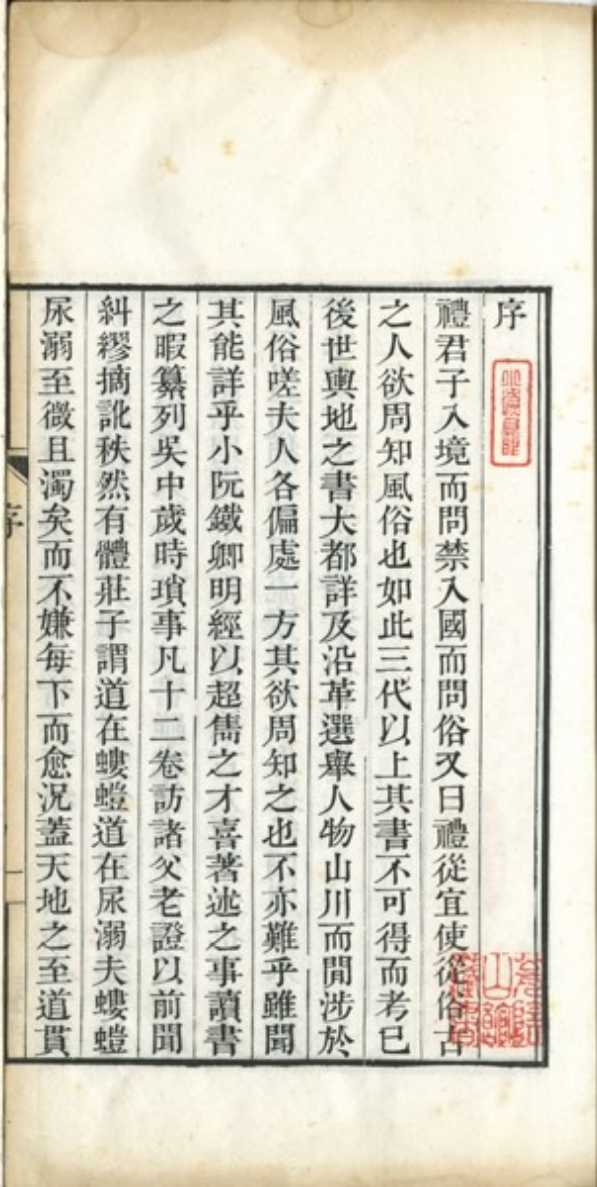 序
禮君子入境而問禁入國而問俗又曰禮從宜使從俗古
之人欲周知風俗也如此三代以上其書不可得而考已
後世輿地之書大都詳及沿革選舉人物山川而閒涉於
風俗嗟夫人各偏處一方其欲周知之也不亦難乎雖聞
其能詳乎小阮鐵卿明經以超雋之才喜著述之事讀書
之暇纂列吳中歲時瑣事凡十二卷訪諸父老證以前聞
糾繆摘訛秩然有體莊子謂道在螻螘道在尿溺夫螻螘
尿溺至微且濁矣而不嫌每下而愈況蓋天地之至道貫
序